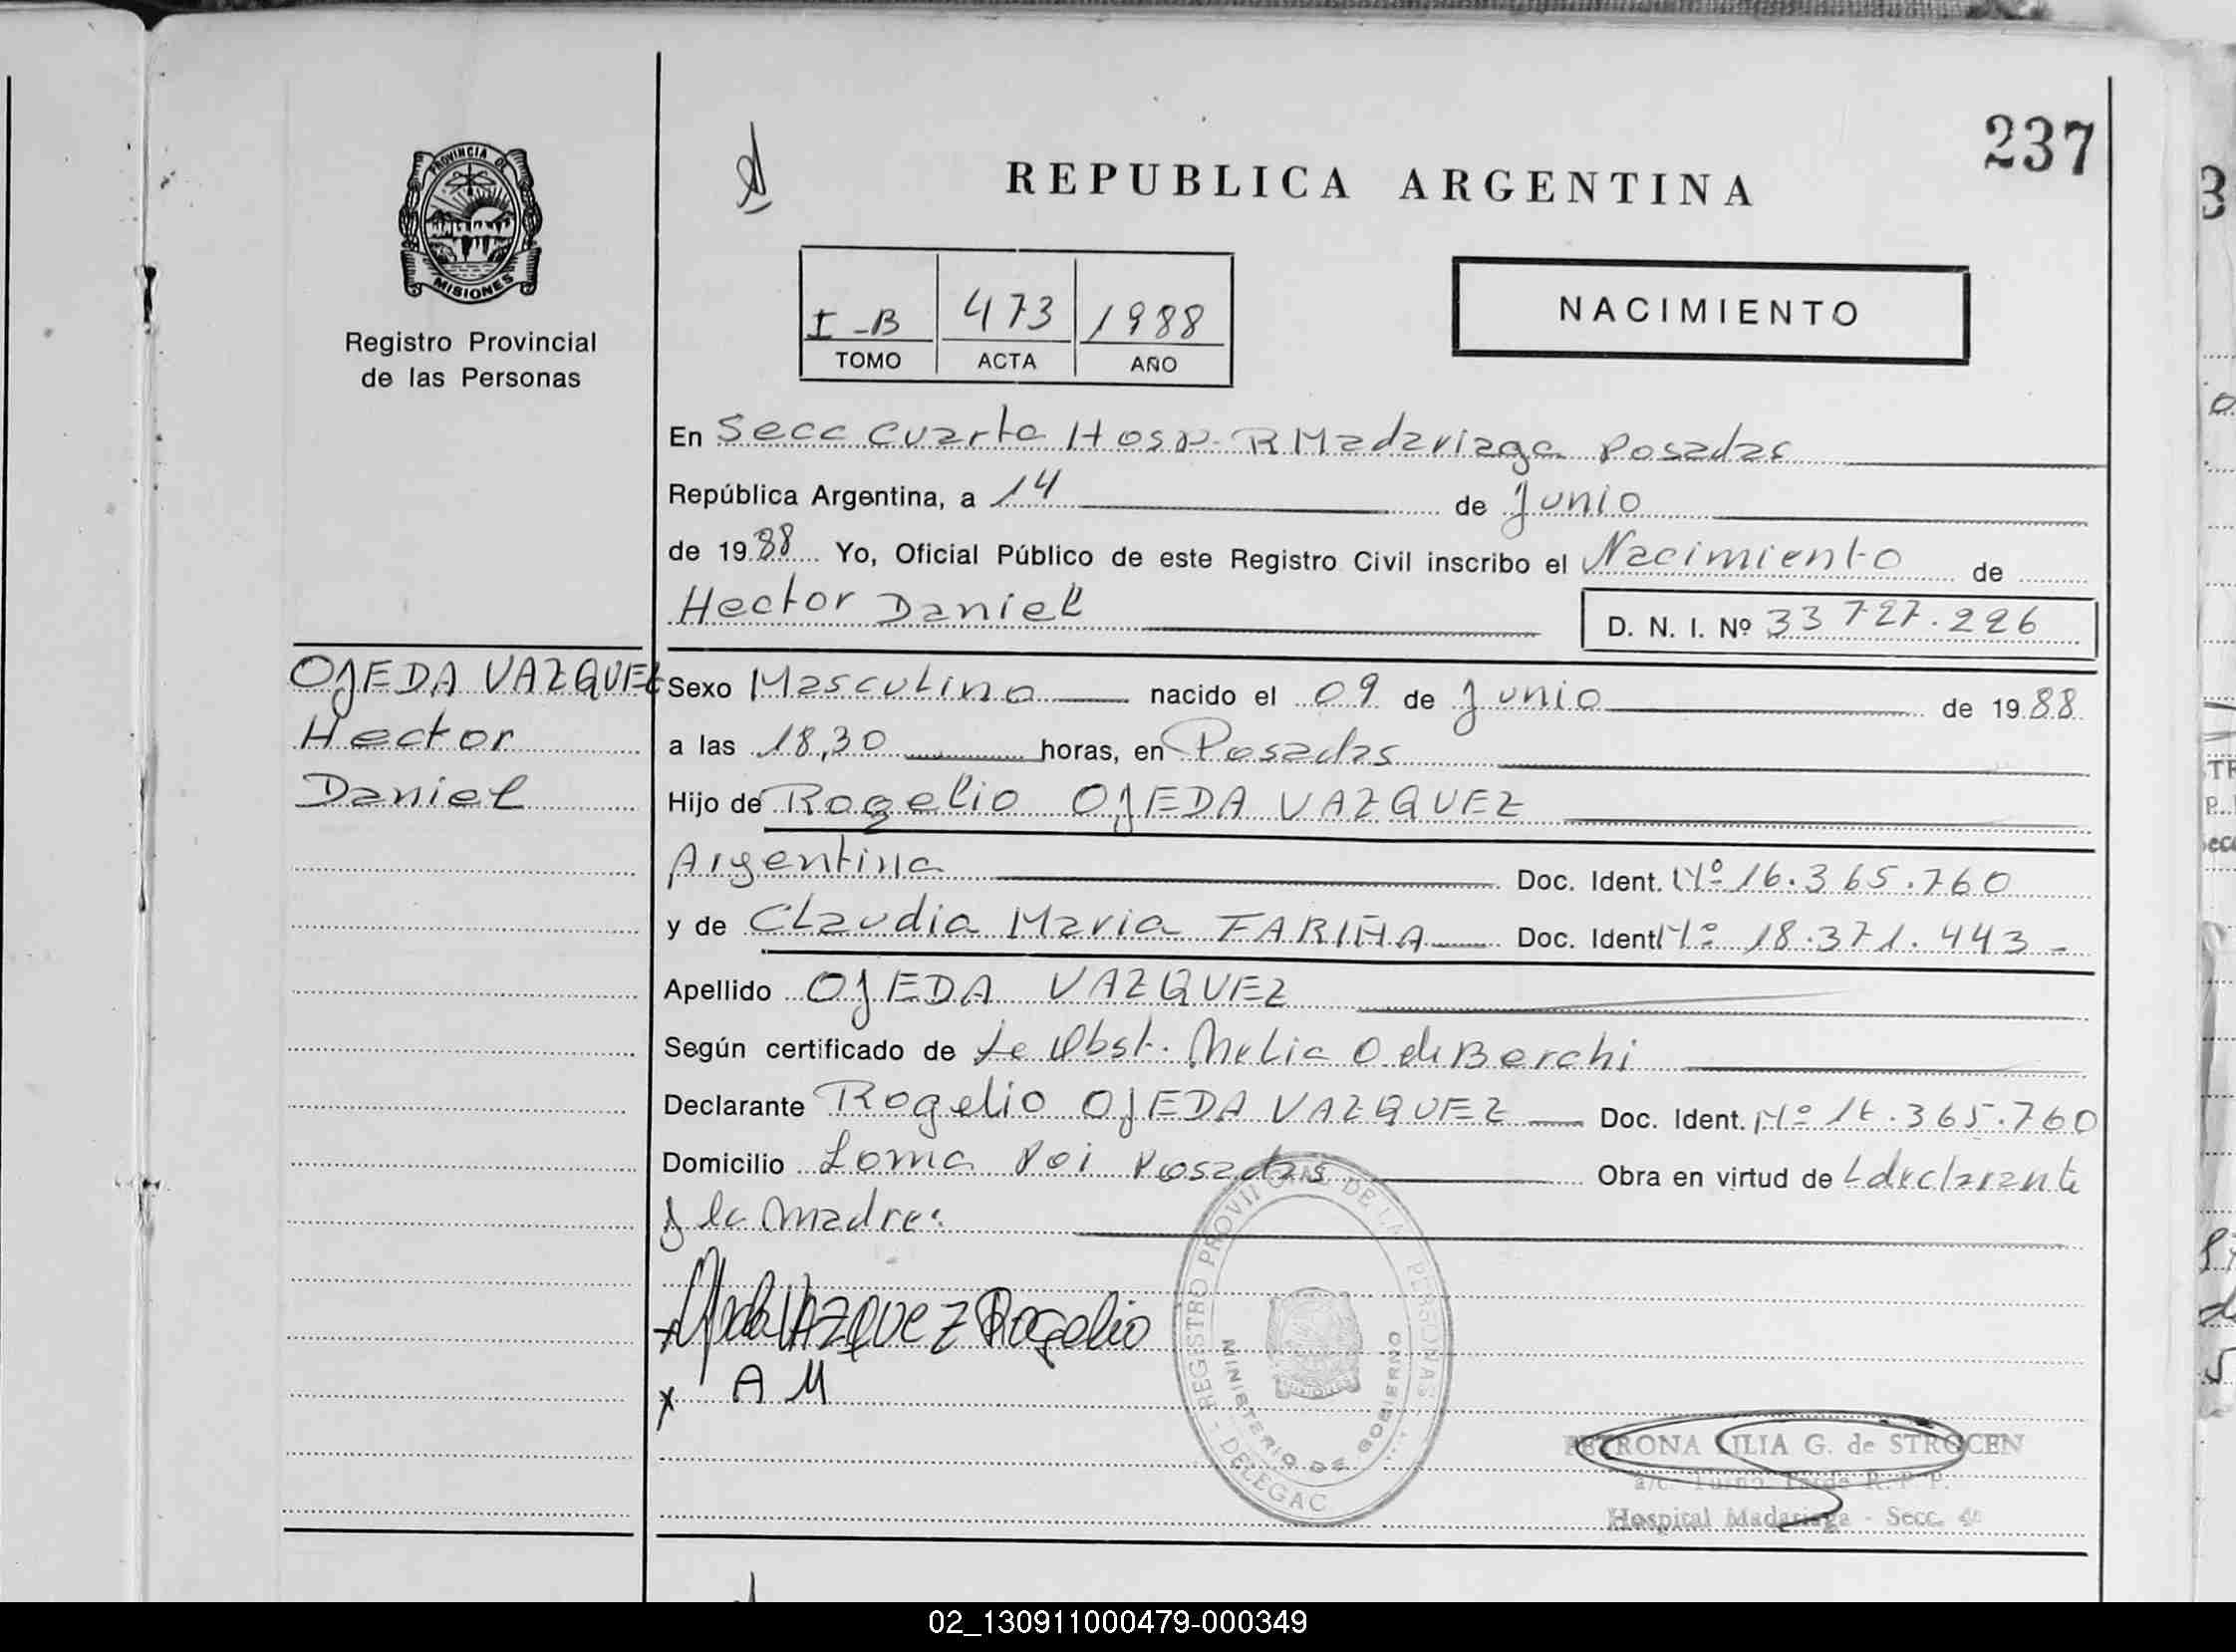 237
REPUBLICA ARGENTINA
PROVINCIA DE
MISIONES
Registro Provincial
de las Personas
I-B 473 1988
TOMO ACTA AÑO
NACIMIENTO
En Secc Cuarta Hosp. R Madariaga Posadas
República Argentina, a 14 de Junio
de 1988 Yo, Oficial Público de este Registro Civil inscribo el Nacimiento de
Hector Daniel
D. N. I. Nº 33 727.226
OJEDA VAZQUEZ
Hector
Daniel
Sexo Masculino nacido el 09 de Junio de 1988
a las 18,30 horas, en Posadas
Hijo de Rogelio OJEDA VAZQUEZ
Argentina Doc. Ident. Nº 16.365.760
y de Claudia Maria FARIÑA Doc. Ident Nº 18.371.443-
Apellido OJEDA VAZQUEZ
Según certificado de Le Obst. Melia O. de Berchi
Declarante Rogelio OJEDA VAZQUEZ Doc. Ident. Nº 16.365.760
Domicilio Loma Poi Posadas Obra en virtud de L declarante
y la madre.
x Ojeda VAZQUEZ Rogelio
x A M
REGISTRO PROVINCIAL DE LAS PERSONAS
MINISTERIO DE GOBIERNO
DELEGAC
PETRONA ILIA G. de STROCEN
a/c. Turno Tarde R. P. P.
Hospital Madariaga - Secc. 4º
02_130911000479-000349